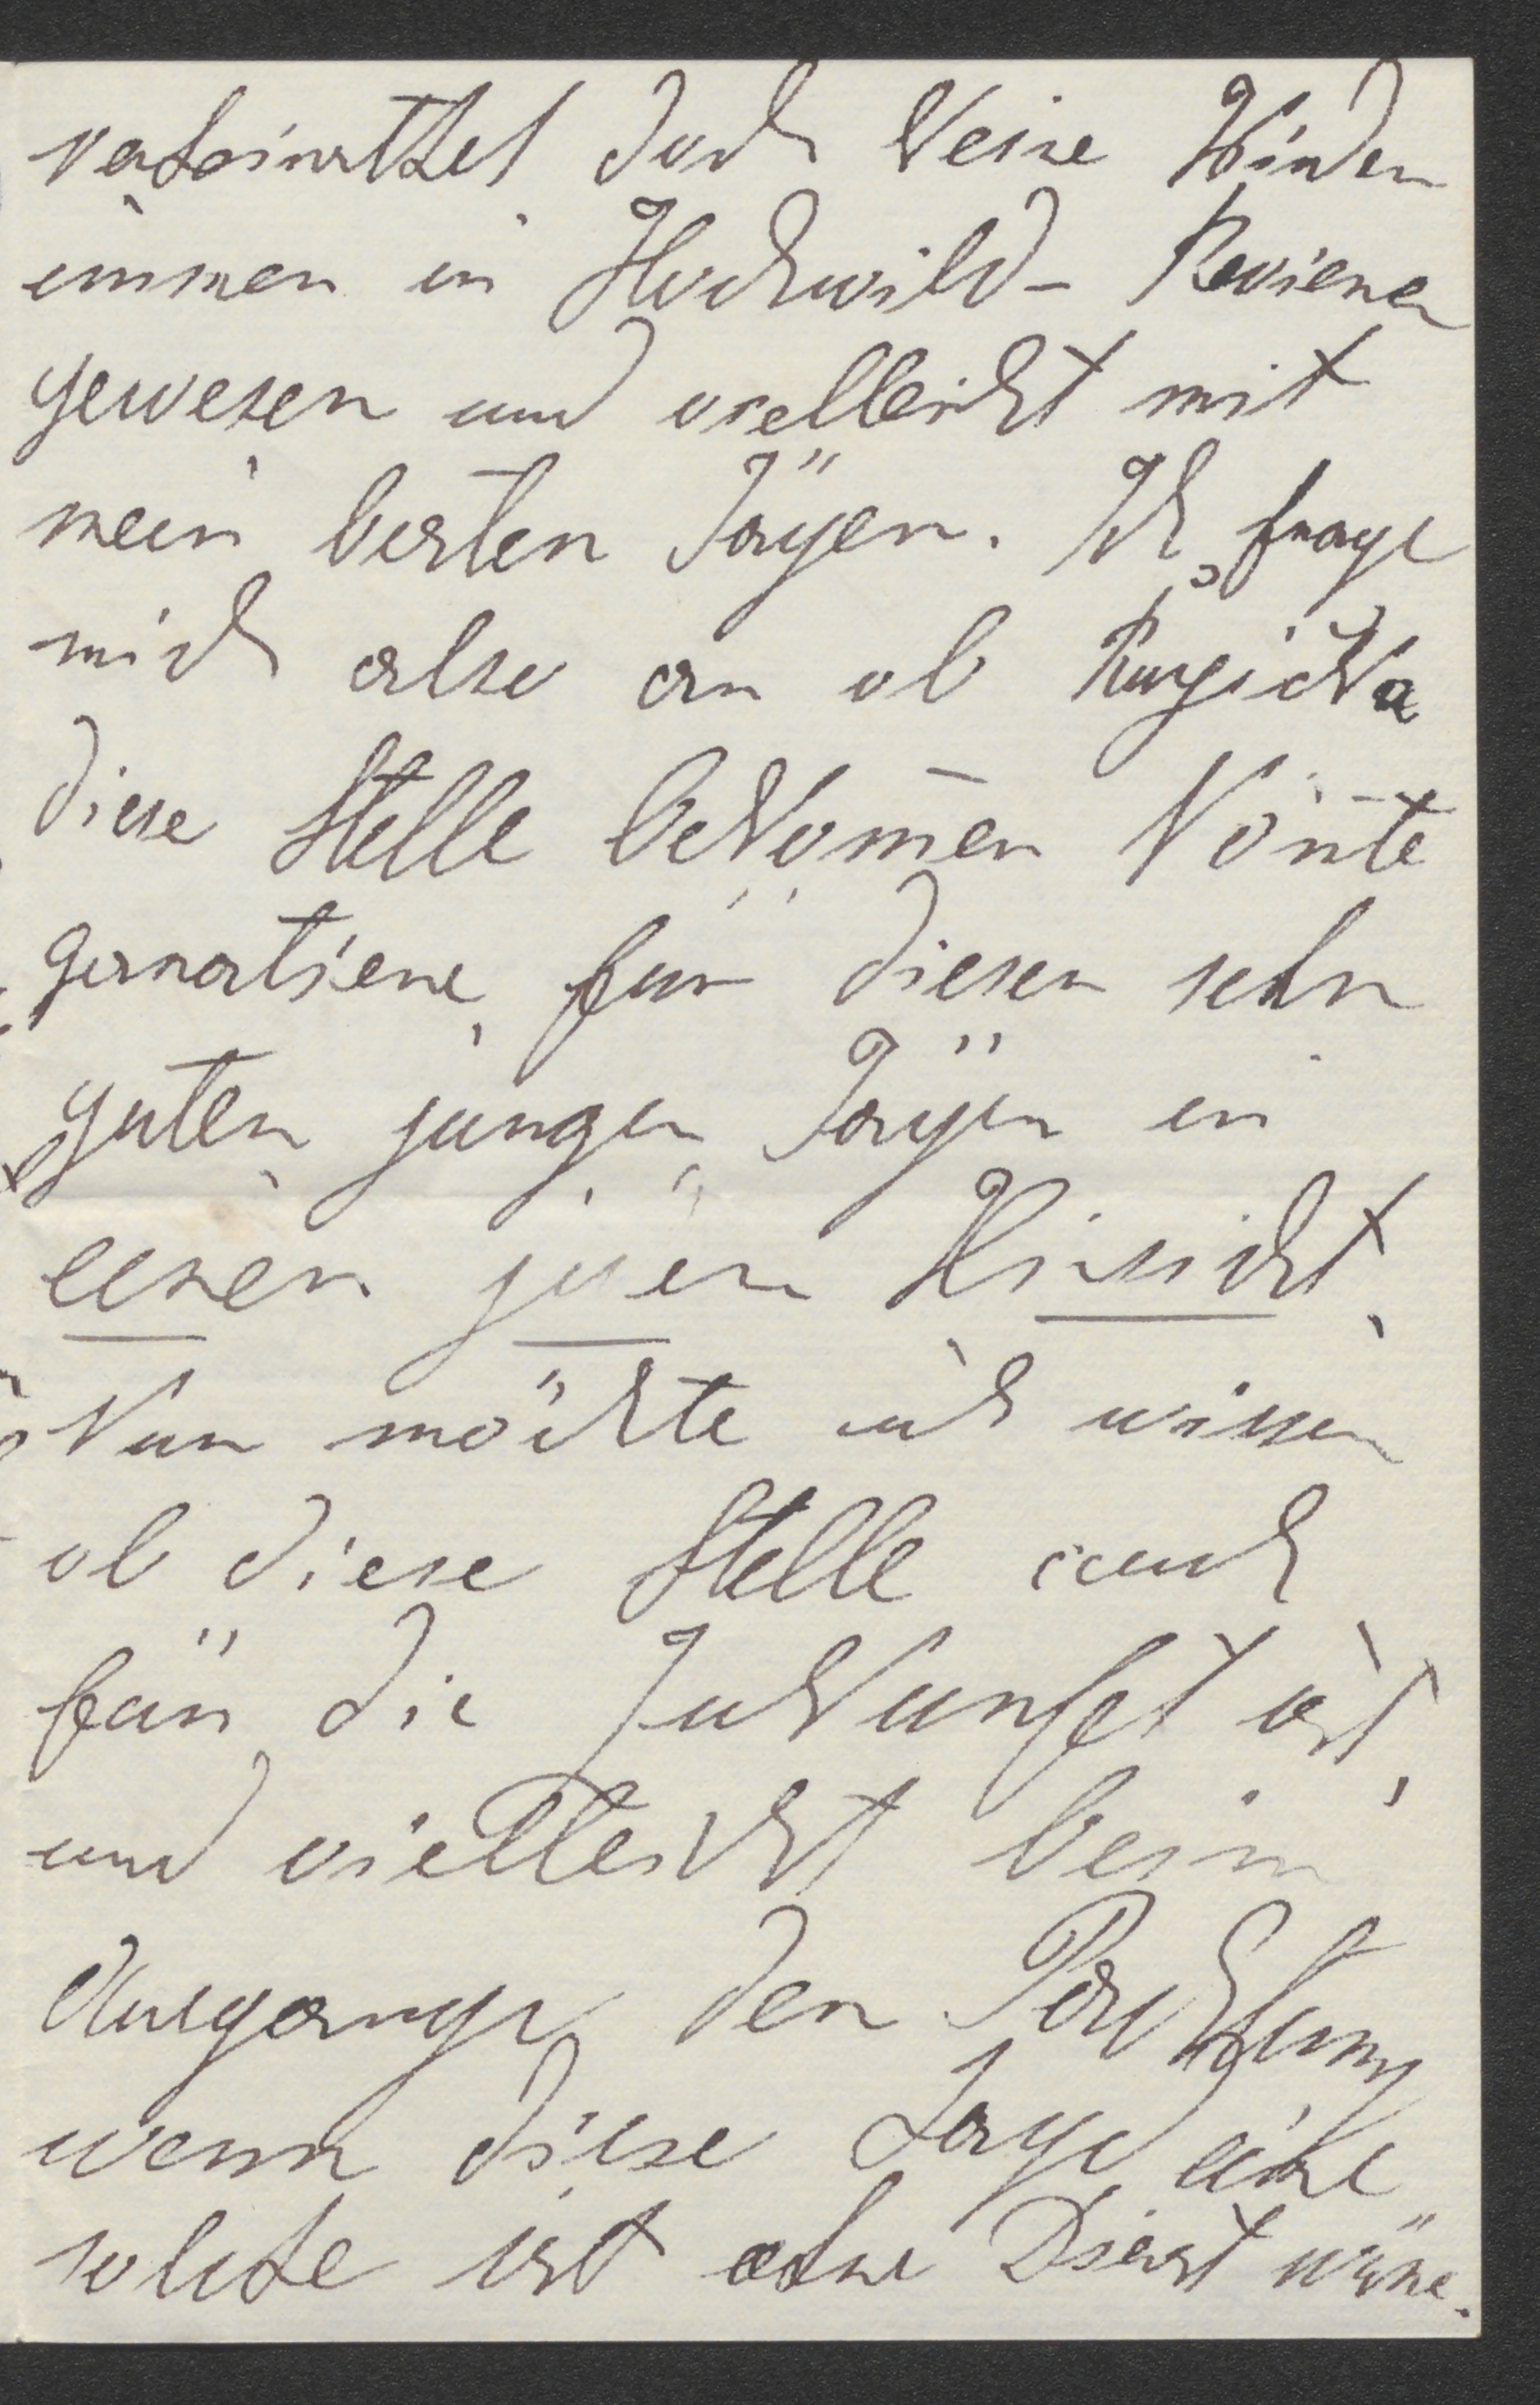 verheirathet doch keine Kinder
immer in Hochwild- Reviere
gewesen und vielleicht mit
mein bester Jäger. Ich frage
mich also an ob
diese Stelle bekom̄en kön̄te
garantiere für diesen sehr
guten jungen Jäger in
einer jeden Hinsicht,
Nun möchte ich wissen
ob diese Stelle auch
für die Zukunft ist,
und vielleicht beim
Ausgange der Pachtung
wenn diese Jagd eine
solche ist ohne Dienst wäre.